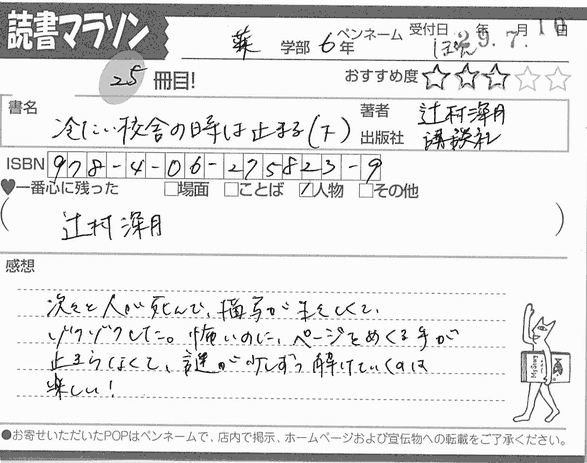 読書マラソン
薬 学部 6年
ペンネーム ぽん
受付日 年 月 日
29.7.10
25 冊目!
おすすめ度 ★★★☆☆
書名
冷たい校舎の時は止まる(下)
著者 辻村深月
出版社 講談社
ISBN 978-4-06-275823-9
♥一番心に残った □場面 □ことば ☑人物 □その他
( 辻村深月 )
感想
次々と人が死んで、描写が生々しくて、
ゾクゾクした。怖いのに、ページをめくる手が
止まらなくて、謎が少しずつ解けていくのは
楽しい!
●お寄せいただいたPOPはペンネームで、店内で掲示、ホームページおよび宣伝物への転載をご了承ください。